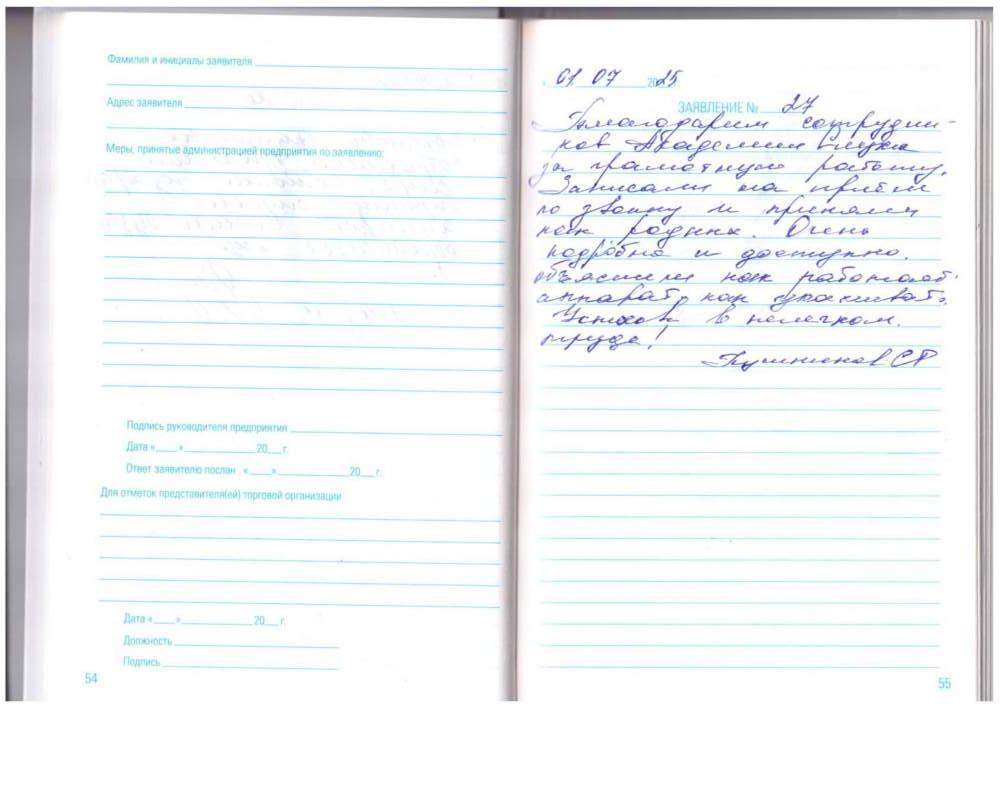 Фамилия и инициалы заявителе
Адрес заявителя
Меры, принятые администрацией предприятия по заявлению:
Подпись руководителя предприятия
Дата «___»____________20___г.
Ответ заявителю послан «___»____________20___г.
Для отметок представителя(ей) торговой организации
Дата «___»____________20___г.
Должность
Подпись
54
01 07 2025
ЗАЯВЛЕНИЕ № 27
Благодарим сотрудни-
ков Академии слуха
за грамотную работу.
Записали на приём
по звонку и приняли
как родных. Очень
подробно и доступно
объяснили как работает
аппарат, как ухаживать.
Успехов в нелегком
труде!
55